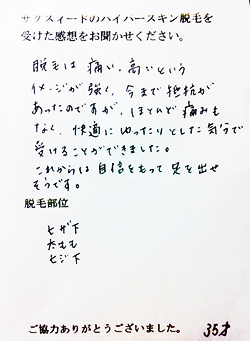 サクスィードのハイパースキン脱毛を
受けた感想をお聞かせください。
脱毛は痛い、高いという
イメージが強く、今まで抵抗が
あったのですが、ほとんど痛みも
なく、快適にゆったりとした気分で
受けることができました。
これからは自信をもって足を出せ
そうです。
脱毛部位
ヒザ下
太もも
ヒジ下
ご協力ありがとうございました。
35才